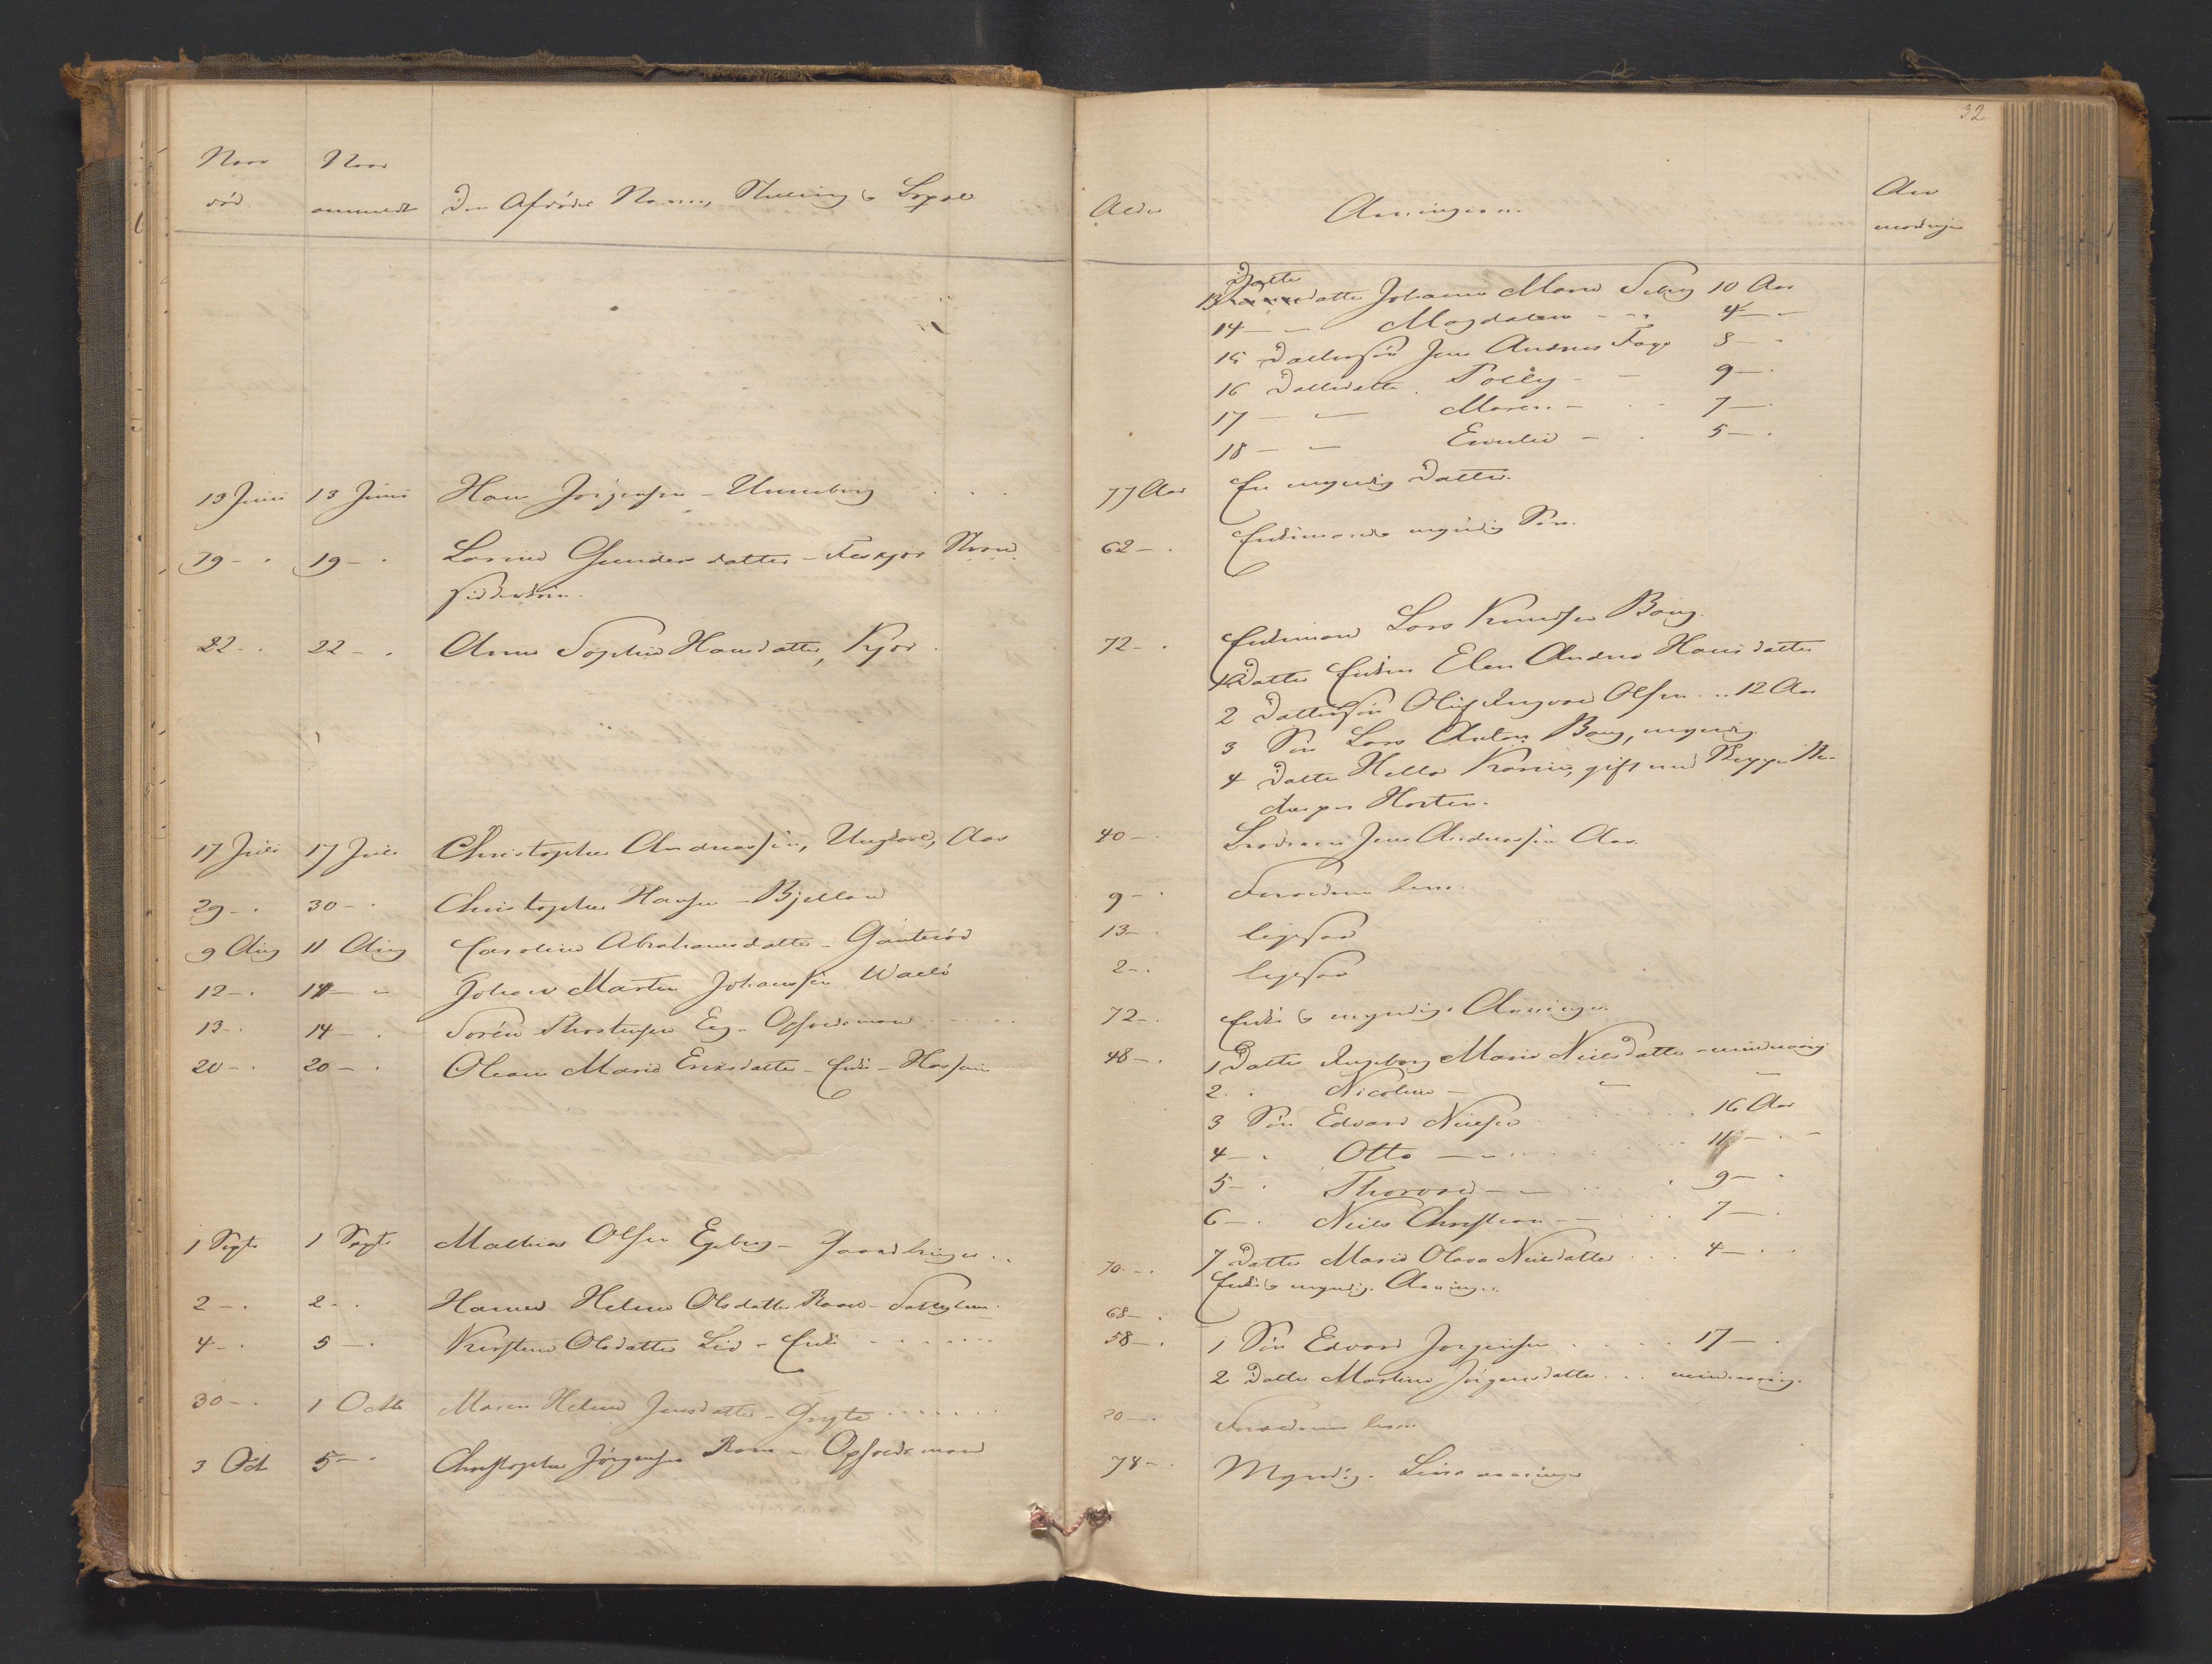 32
Naar død.
Naar anmeldt
Den Afdødes Navn, Stilling & Bopæl
Alder
Arvingerne.
An mærkning
Datter
13 datter Johanne Marie Seberg 10 Aar
14 — — Magdalene - - 4 — -
15 Dattersøn Jens Andreas Fage 8 — -
16 Datterdatter Polly - — 9 — .
17 — — Maren — . - 7 — .
18 — — Emilie — . 5 — .
13 Juni 13 Juni Hans Jørgensen - Unneberg . . . 77 Aar En myndig Datter.
19 — . 19 — . Lovine Gundersdatter - Feskjær Strand 62 — . Enkemand & myndig Søn.
sidderske.
22 — . 22 — . Anne Sophie Hansdatter, Kjær . 72 — . Enkemand Lars Knudsen Bang.
1 Datter Enken Elen Andrea Hansdatter
2 Dattersøn Oluf Ingvald Olsen . . 12 Aar
3 Søn Lars Anton Bang, myndig.
4 Datter Helle Karine, gift med
Horten.
17 Juli 17 Juli Christopher Andreassen, Ungkarl, Aas 40 — . Broderen Jens Andreassen Aas.
29 — . 30 — . Christopher Hansen - Bjelland 9 — . Forældrene leve.
9 Aug 11 Aug Caroline Abrahamsdatter - Gauterød 13 — . ligesaa
12 — . 14 — - Johan Martin Johansen Valø 2 — . ligesaa
13 — . 14 — . Søren Thorstensen Eeg - Opfodsmand . . . . . 72 — . Enke & myndige Arvinger.
20 — . 20 — . Oleane Marie Ericsdatter - Enke - 48 — . 1 Datter Ingeborg Marie Nielsdatter - mindreaarig.
2 . . Nicoline — — —
3 Søn Edvard Nielsen . . . . . 16 Aar
4 — . Otto — - . . . . . 11 — . —
5 — . Thorvald — — . . . 9 — .
6 — . Niels Christian — — . . 7 — .
7 Datter Marie Olava Nielsdatter . . 4 — . .
1 Septr 1 Septr Mathias Olsen Egeberg - Gaardbruger . . 70 — . Enke & myndige Arvinger.
2 — . 2 — . Hanne Helene Olsdatter Raae - Fattiglem. 68 — .
4 — . 5 — . Kirstine Olsdatter Lid - Enke . . . . . 58 — . 1 Søn Edvard Jørgensen . . . . . 17 — .
2 Datter Martine Jørgensdatter . . . mindreaarig.
30 — . 1 Octbr Maren Helene Jensdatter - Gryte . . . . . . . 20 — . Forældrene leve.
3 Oct 5 — . Christopher Jørgensen Raae - Opfodsmand 78 — . Myndige Livsarvinger